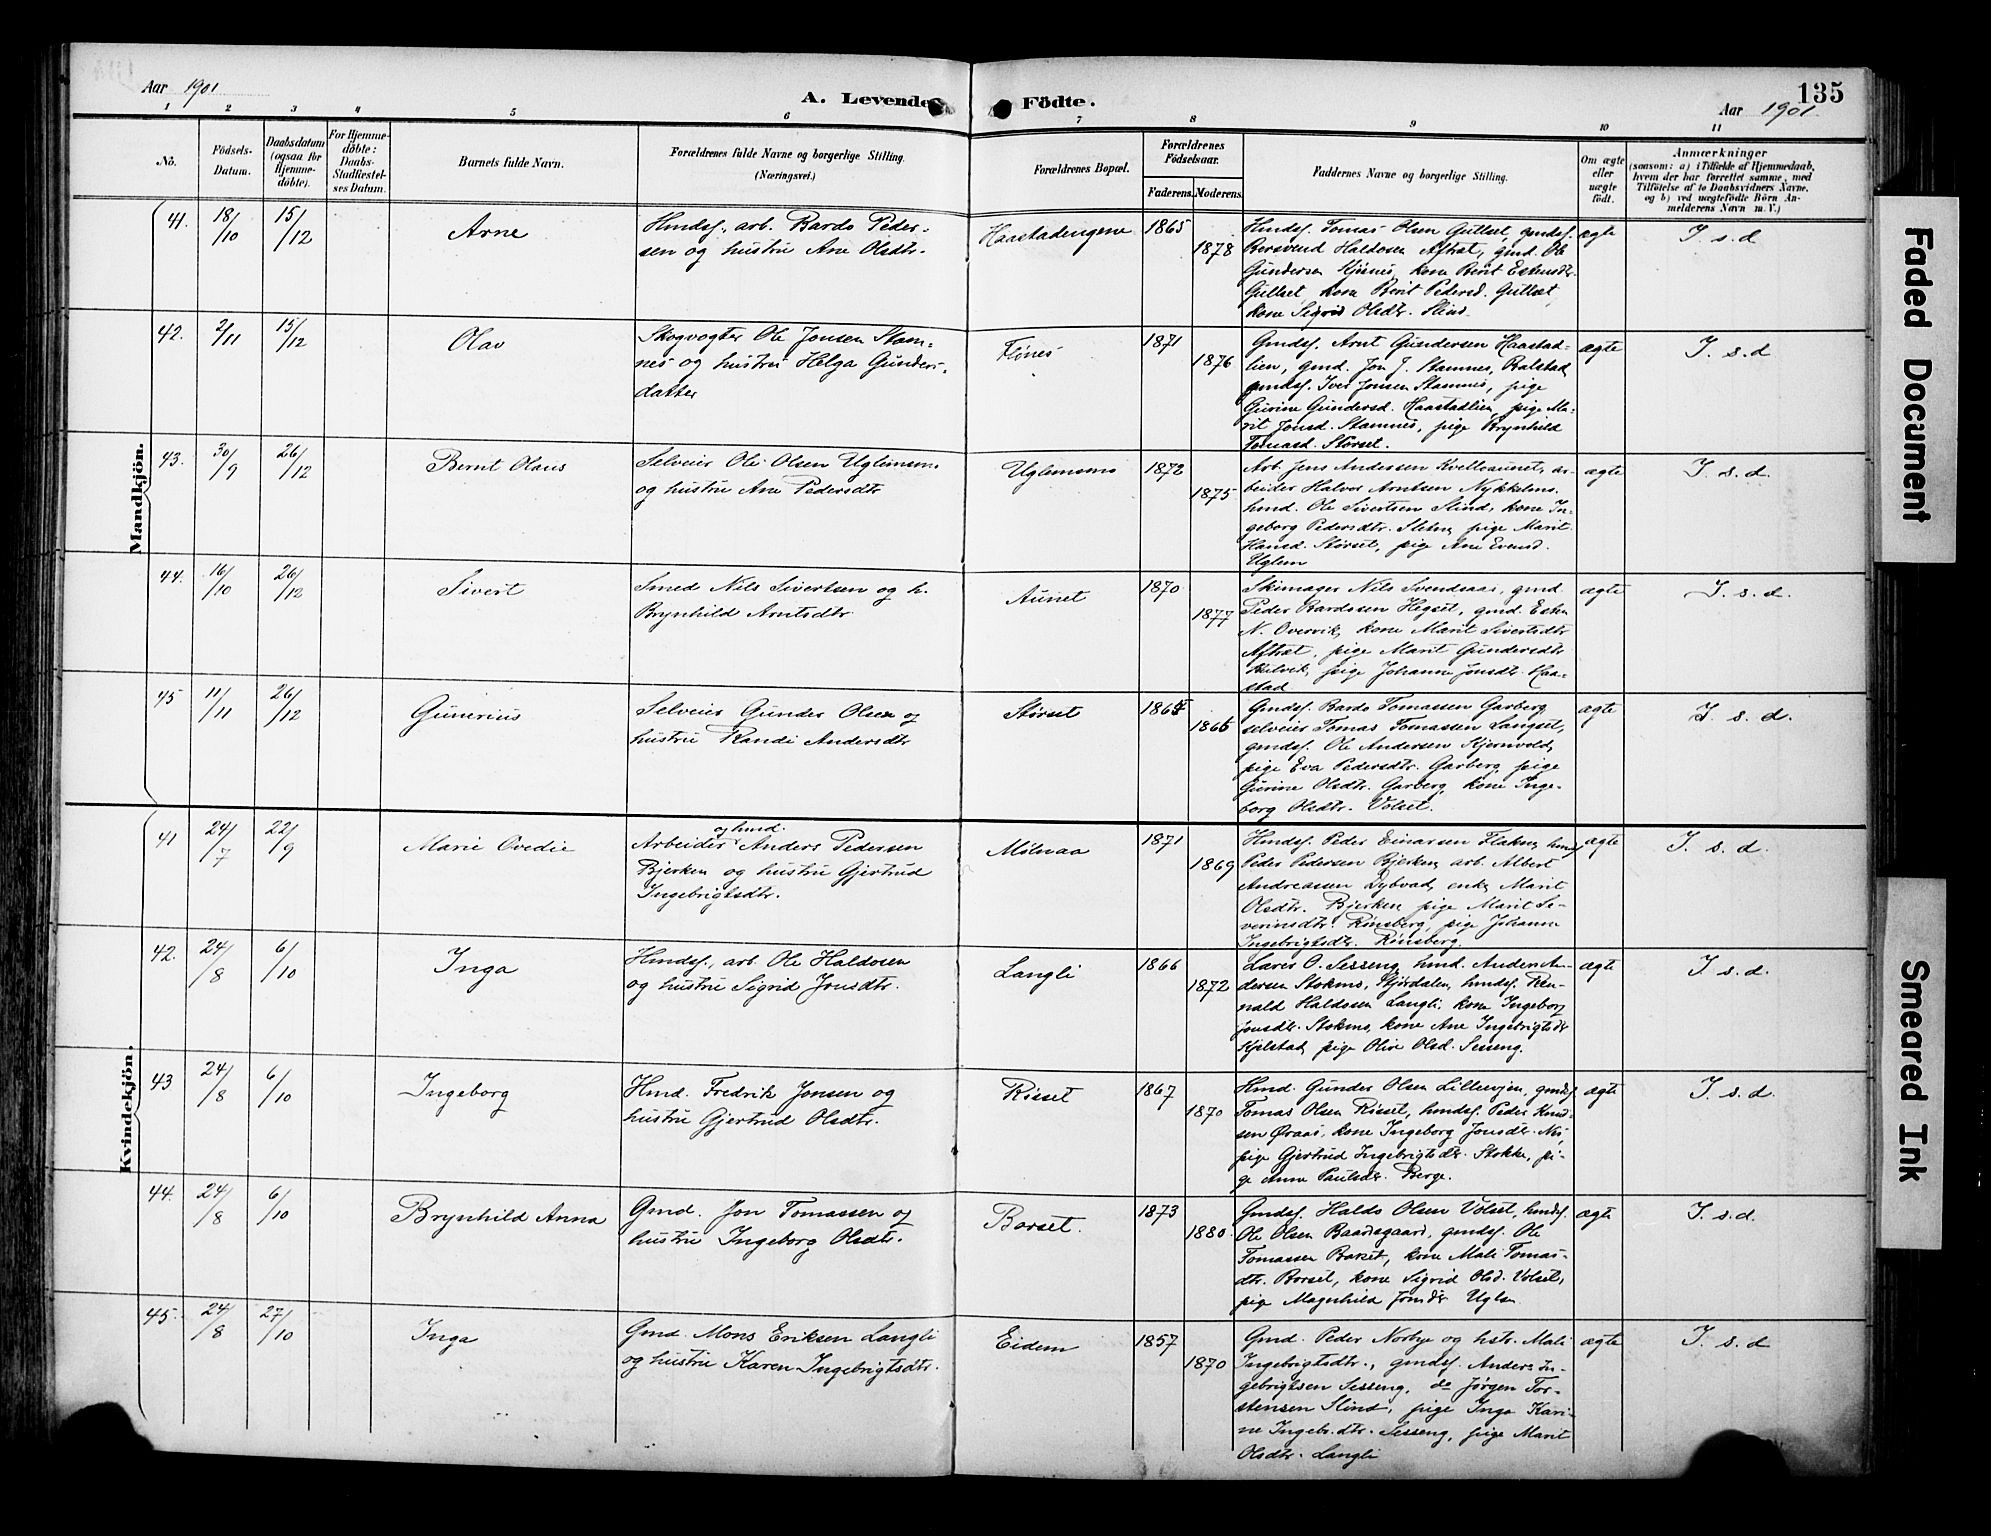 Aar 1901
A. Levende Födte.
135
Aar 1901
1 2 3 4 5 6 7 8 9 10 11
No.
Födsels-
Datum.
Daabsdatum
(ogsaa for
Hjemme-
döbte).
For Hjemme-
döbte:
Daabs-
Stadfæstel-
ses Datum.
Barnets fulde Navn.
Forældrenes fulde Navne og borgerlige Stilling.
(Næringsvei.)
Forældrenes Bopæl.
Forældrenes
Födselsaar.
Faderens. Moderens.
Faddernes Navne og borgerlige Stilling.
Om ægte
eller
uægte
födt.
Anmærkninger
(saasom: a) i Tilfælde af Hjemmedaab,
hvem der har forrettet samme, med
Tilföielse af to Daabsvidners Navne,
og b) ved uægtefödte Börn An-
melderens Navn m. V.)
Mandkjön.
41. 18/10 15/12
Arne
Hmdsf. arb. Bardo Peder-
sen og hustru Ane Olsdtr.
Haastadengene
1865
1878
Hmdsf. Tomas Olsen Gullset, gmdsf.
Bersvend Haldosen Aftret, gmd. Ole
Gundersen Kjøsnes, kone Berit Estensdtr.
Gullset, kone Berit Pedersd. Gullset,
kone Sigrid Olsdtr. Slind.
ægte
I. s. d
42. 2/11 15/12
Olav
Skogvogter Ole Jonsen Stam-
nes og hustru Helga Gunders-
datter
Flønes
1871
1876
Gmdsf. Arnt Gundersen Haastad-
lien, gmd. Jon J. Stamnes, Balstad,
gmdsf. Iver Jonsen Stamnes, pige
Gurine Gundersd. Haastadlien, pige Ma-
rit Jonsd. Stamnes, pige Brynhild
Tomasd. Størset.
ægte
I. s. d
43. 30/9 26/12
Bernt Olaus
Selveier Ole Olsen Uglemsmo
og hustru Ane Pedersdtr
Uglemsmo
1872
1875
Arb. Jens Andersen Kvelloaunet, ar-
beider Halvor Arntsen Nykkelmo,
hmd. Ole Sivertsen Slind, kone In-
geborg Pedersdtr. Sleten, pige Marit
Hansd. Størset, pige Ane Evensd.
Uglem
ægte
I. s. d.
44. 16/10 26/12
Sivert
Smed Nils Sivertsen og h.
Brynhild Arntsdtr
Aunet
1870
1877
Skimager Nils Svendsaas, gmd
Peder Bardosen Hegset, gmd. Esten
N. Overvik, kone Marit Sivertsdtr
Aftret, pige Marit Gundersdtr
pige Johanna Jonsdtr. Haa-
stad
ægte
I. s. d.
45 11/11 26/12
Gunerius
Selveier Gunder Olsen og
hustru Randi Andersdtr
Størset
1866
Gmdsf. Bardo Tomassen Garberg
selveier Tomas Tomassen Langset,
gmdsf. Ole Andersen Kjernvold,
pige Eva Pedersdtr. Garberg, pige
Gurine Olsdtr. Garberg, kone Inge-
borg Olsdtr. Volset.
ægte
I. s. d.
Kvindekjön.
41 24/7 22/9
Marie Ovedie
og hmd.
Arbeider Anders Pedersen
Bjerken og hustru Gjertrud
Ingebrigtsdtr.
Mølnaa
1871
1869
Hmdsf. Peder Einarsen Flaknes, hmdsf
Peder Pedersen Bjerken, arb. Albert
Andreassen Dybvad, enke Marit
Olsdtr. Bjerken, pige Marit Se-
verinsdtr. Rønsberg, pige Johanna
Ingebrigtsdtr. Rønsberg.
ægte
I. s. d.
42. 24/8 6/10
Inga
Hmdsf., arb. Ole Haldosen
og hustru Sigrid Jonsdtr.
Langli
1866
1872
Lærer O. Sesseng, hmd. Anders An-
dersen Stokmo, Stjørdalen, hmdsf. Rei-
nald Haldosen Langli, kone Ingeborg
Jonsdtr. Stokmo, kone Ane Ingebrigtsdtr
Kjelstad, pige Olive Olsd. Sesseng.
ægte
I. s. d.
43 24/8 6/10
Ingeborg
Hmd. Fredrik Jonsen og
hustru Gjertrud Olsdtr.
Risset
1867
1870
Hmd. Gunder Olsen Lillevjen, gmdsf
Tomas Olsen Risset, hmdsf. Peder Knud-
sen Øraas, kone Ingeborg Jonsdtr. Nes,
pige Gjertrud Ingebrigtsdtr. Stokke, pi-
ge Anne Paulsdtr. Berge.
ægte
I. s. d.
44. 24/8 6/10
Brynhild Anna
Gmd. Jon Tomassen og
hustru Ingeborg Olsdtr.
Borset.
1873
1880.
Gmdsf. Haldo Olsen Volset, hmdsf.
Ole Olsen Baardsgaard, gmdsf. Ole
Tomassen Borset, kone Mali Tomas-
dtr. Borset, kone Sigrid Olsd. Volset,
pige Magnhild Jonsdtr Uglem
ægte
I. s. d.
45. 24/8 27/10
Inga
Gmd. Mons Eriksen Langli
og hustru Karen Ingebrigtsdtr.
Eidem
1857
1870
Gmd. Peder Norbye og hstr. Mali
Ingebrigtsdtr., gmdsf. Anders In-
gebrigtsen Sesseng, do Jørgen Tor-
stensen Slind, pige Inga Kari-
ne Ingebr.dtr. Sesseng, pige Marit
Olsdtr. Langli
ægte
I. s. d
Faded Document
Smeared Ink